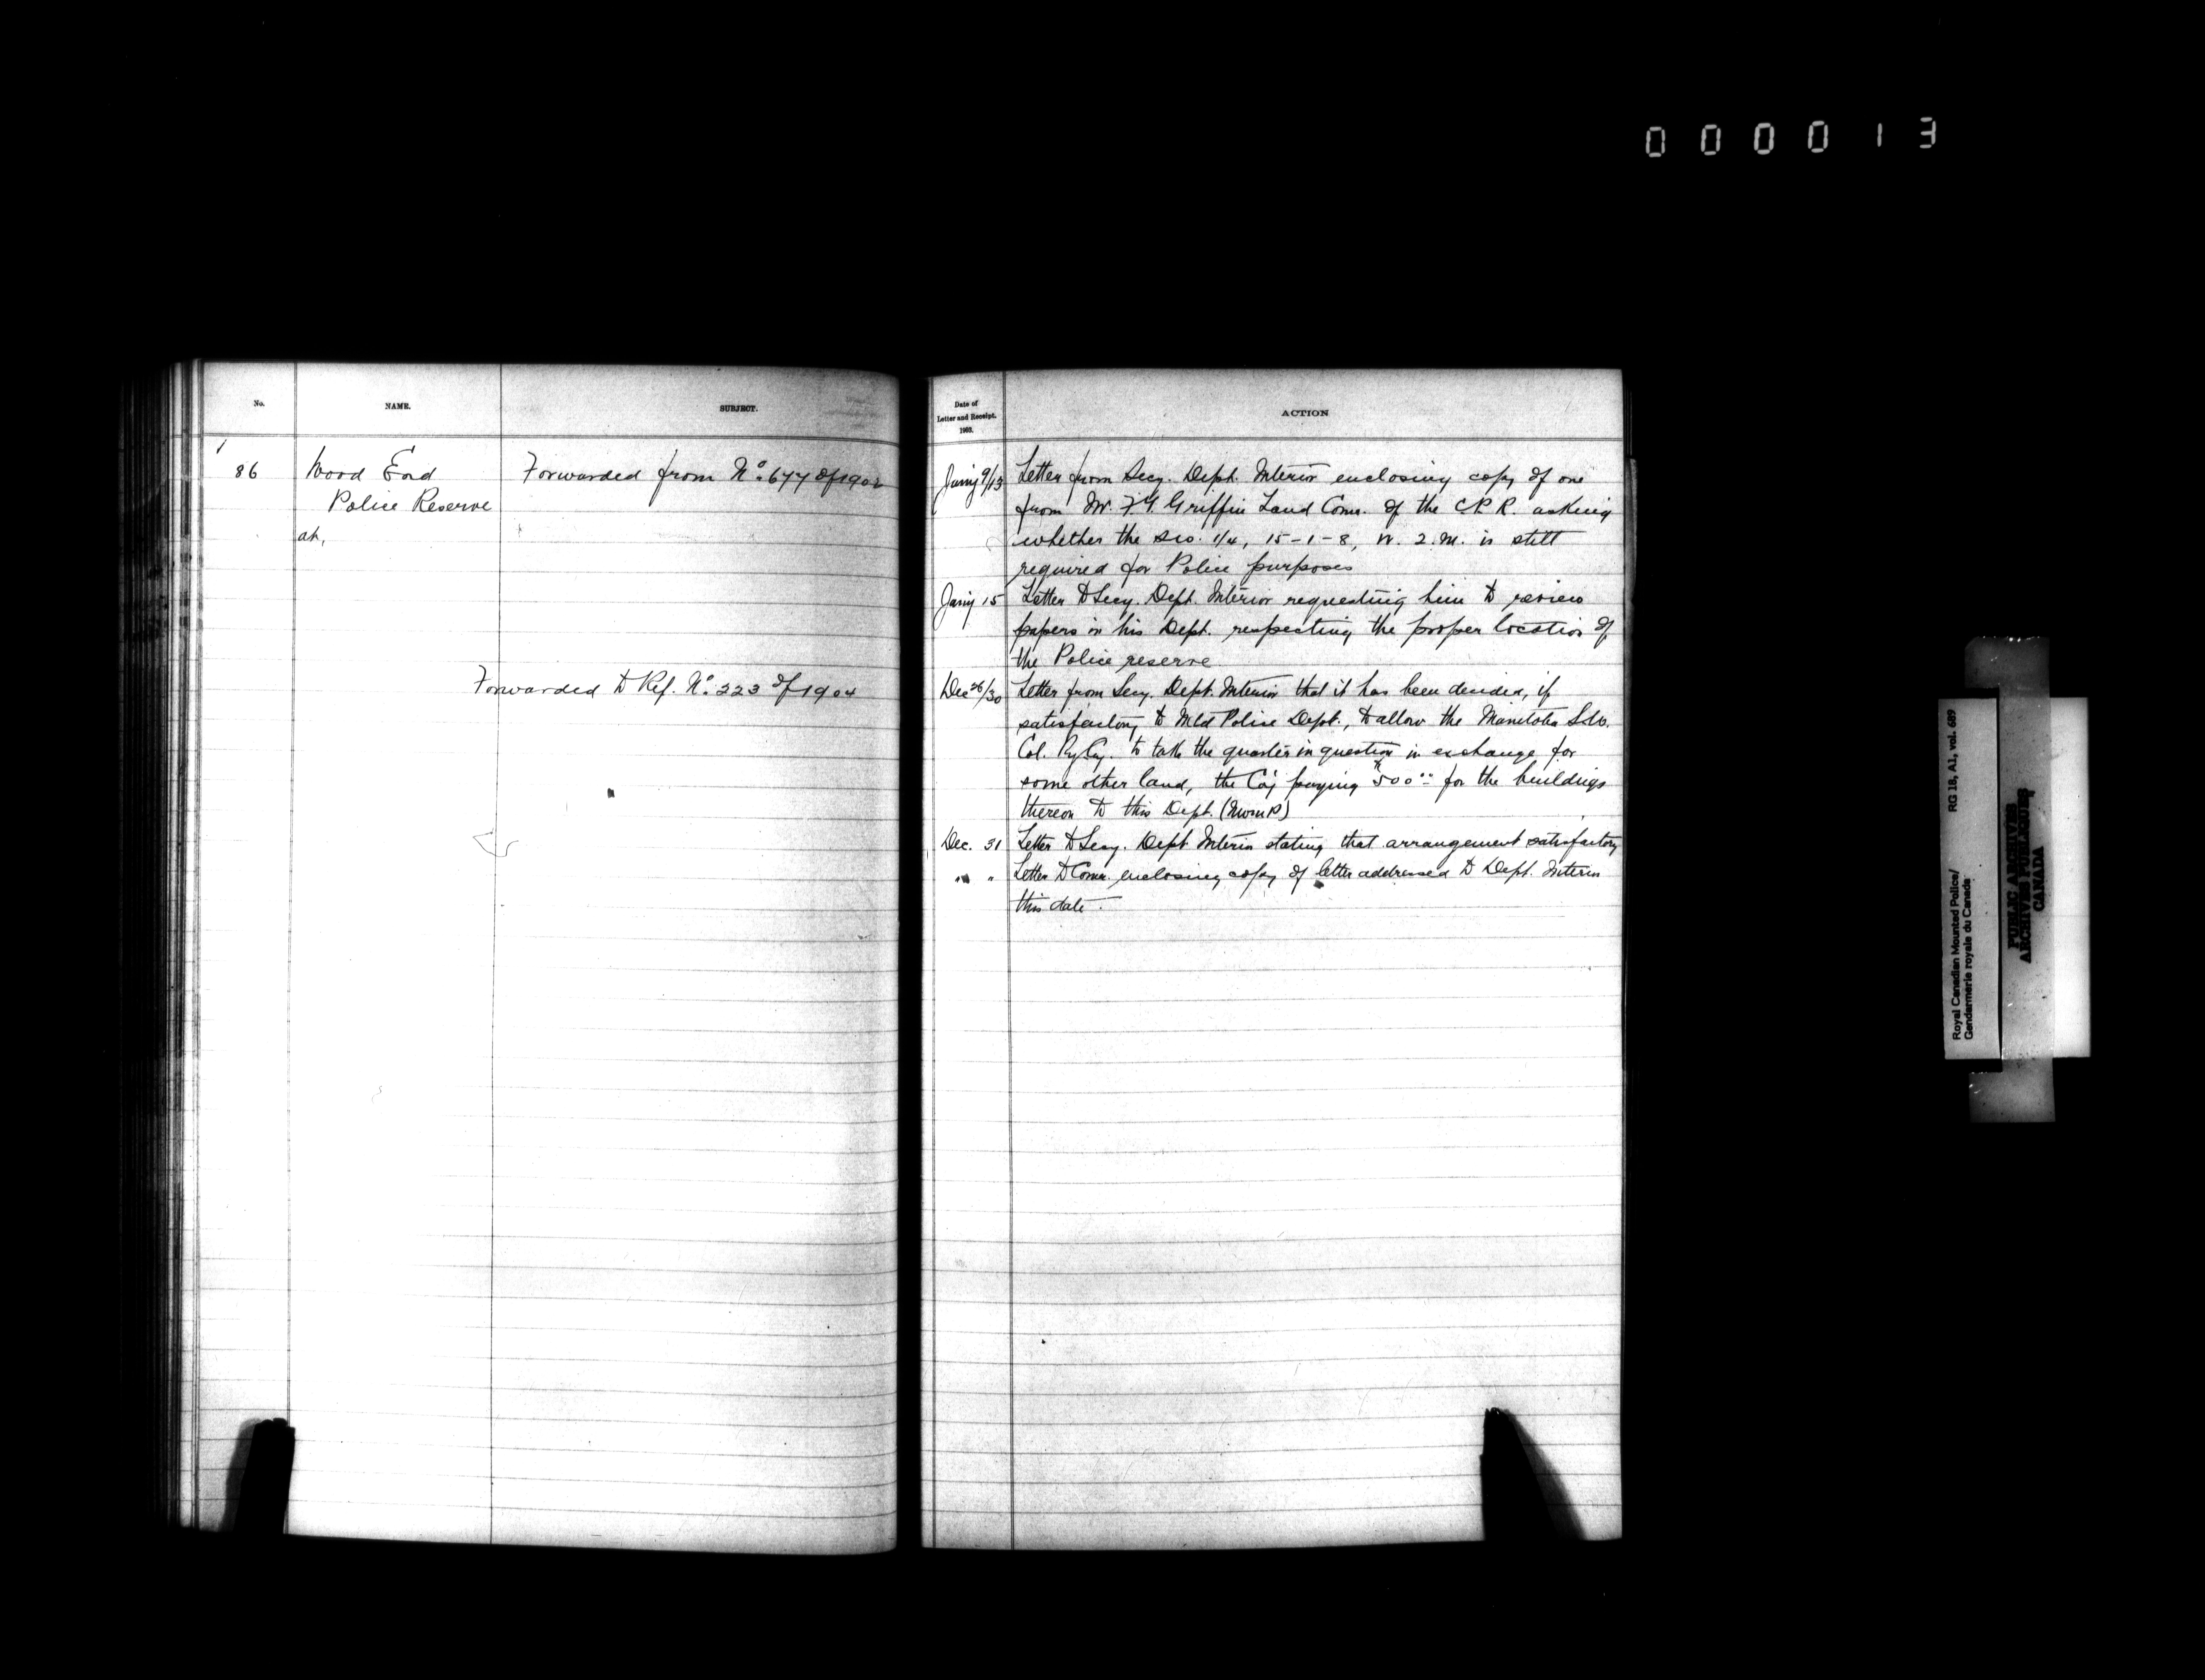 000013
No.
NAME.
SUBJECT.
86
Wood End
Forwarded from No. 677 of 1902
Police Reserve
at,
Forwarded to Ref. No. 223 of 1904
Date of
Letter and Receipt.
1903.
ACTION
Jany 9/13 Letter from Secy. Dept. Interior enclosing copy of one
from Mr. F.T. Griffin Land Comr. of the C.P.R. asking
whether the 1/4, 15-1-8, W. 2. M. is still
required for Police purposes
Jany 15 Letter to Secy. Dept. Interior requesting him to review
papers in his Dept. respecting the proper location of
the Police reserve
Dec 26/30 Letter from Secy. Dept. Interior that it has been decided, if
satisfactory to Mtd Police Dept., to allow the Manitoba
Col. Ry Cy. to take the quarter in question in exchange for
some other land, the Coy paying $500.00 for the buildings
thereon to this Dept. (NWMP)
Dec. 31 Letter to Secy. Dept Interior stating that arrangement satisfactory
" " Letter to Comr. enclosing copy of letter addressed to Dept. Interior
this date.
Royal Canadian Mounted Police/
Gendarmerie royale du Canada
RG 18, A1, vol. 689
PUBLIC ARCHIVES
ARCHIVES PUBLIQUES
CANADA